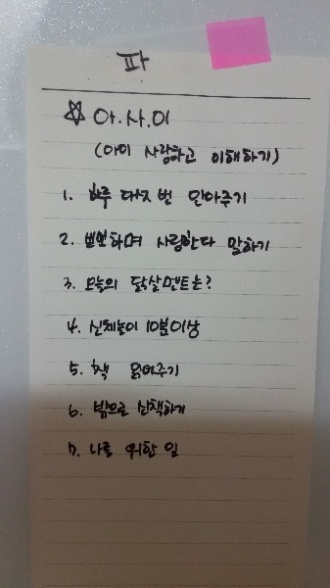 파
☆ 아.사.이
(아이 사랑하고 이해하기)
1. 하루 다섯 번 안아주기
2. 뽀뽀하며 사랑한다 말하기
3. 오늘의 닭살멘트는?
4. 신체놀이 10분이상
5. 책 읽어주기
6. 밖으로 산책하기
7. 나를 위한 일